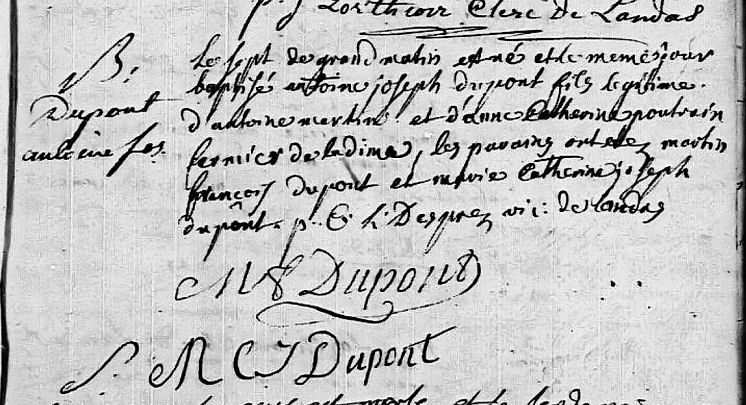 p. j Lorthioir Clerc de Landas
B.
Dupont
antoine Jos.
Le sept de grand matin est né et le meme jour
baptisé antoine joseph dupont fils legitime
d'antoine martin et d'anne Catherine poutrain
fermier de ladime, les parains ont etez martin
françois dupont et marie Catherine joseph
dupont. p. G. L. Desprez vic: de landas
M f Dupont
S. M C J Dupont
est morte et le